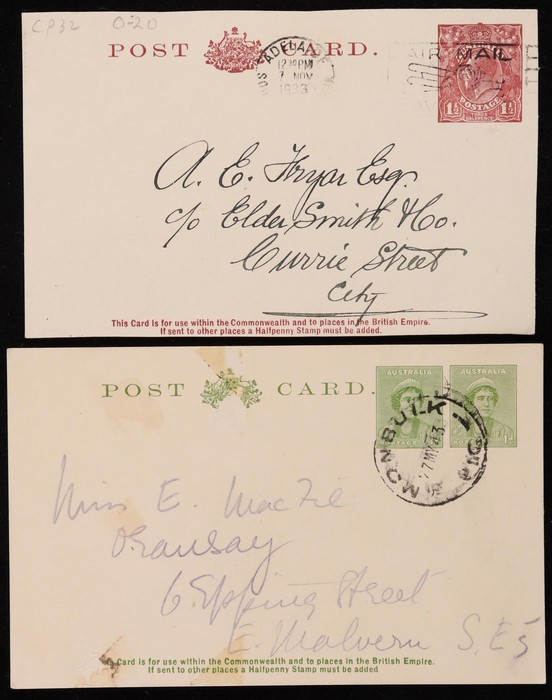 CP32 0-20
POST CARD.
ADELAIDE
12 PM
7 NOV
1933
AIR MAIL
1½ POSTAGE 1½
A. E. Fryar Esq.
c/o Elder Smith & Co.
Currie Street
City
This Card is for use within the Commonwealth and to places in the British Empire.
If sent to other places a Halfpenny Stamp must be added.
POST CARD.
AUSTRALIA AUSTRALIA
1D
MONBULK
Miss E. MacFie
Oransay
6 Epping Street
E. Malvern S.E.5
Card is for use within the Commonwealth and to places in the British Empire.
If sent to other places a Halfpenny Stamp must be added